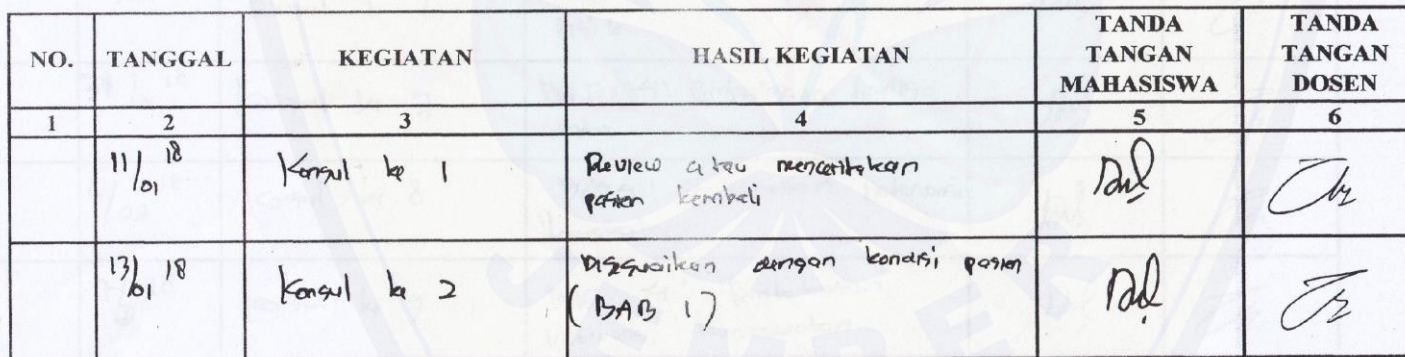 NO. TANGGAL KEGIATAN HASIL KEGIATAN TANDA TANGAN MAHASISWA TANDA TANGAN DOSEN
1 2 3 4 5 6
11/01 18 Konsul ke 1 Review atau menceritakan
pasien kembali
13/01 18 Konsul ke 2 Disesuaikan dengan kondisi pasien
(BAB 1)
JEMBER